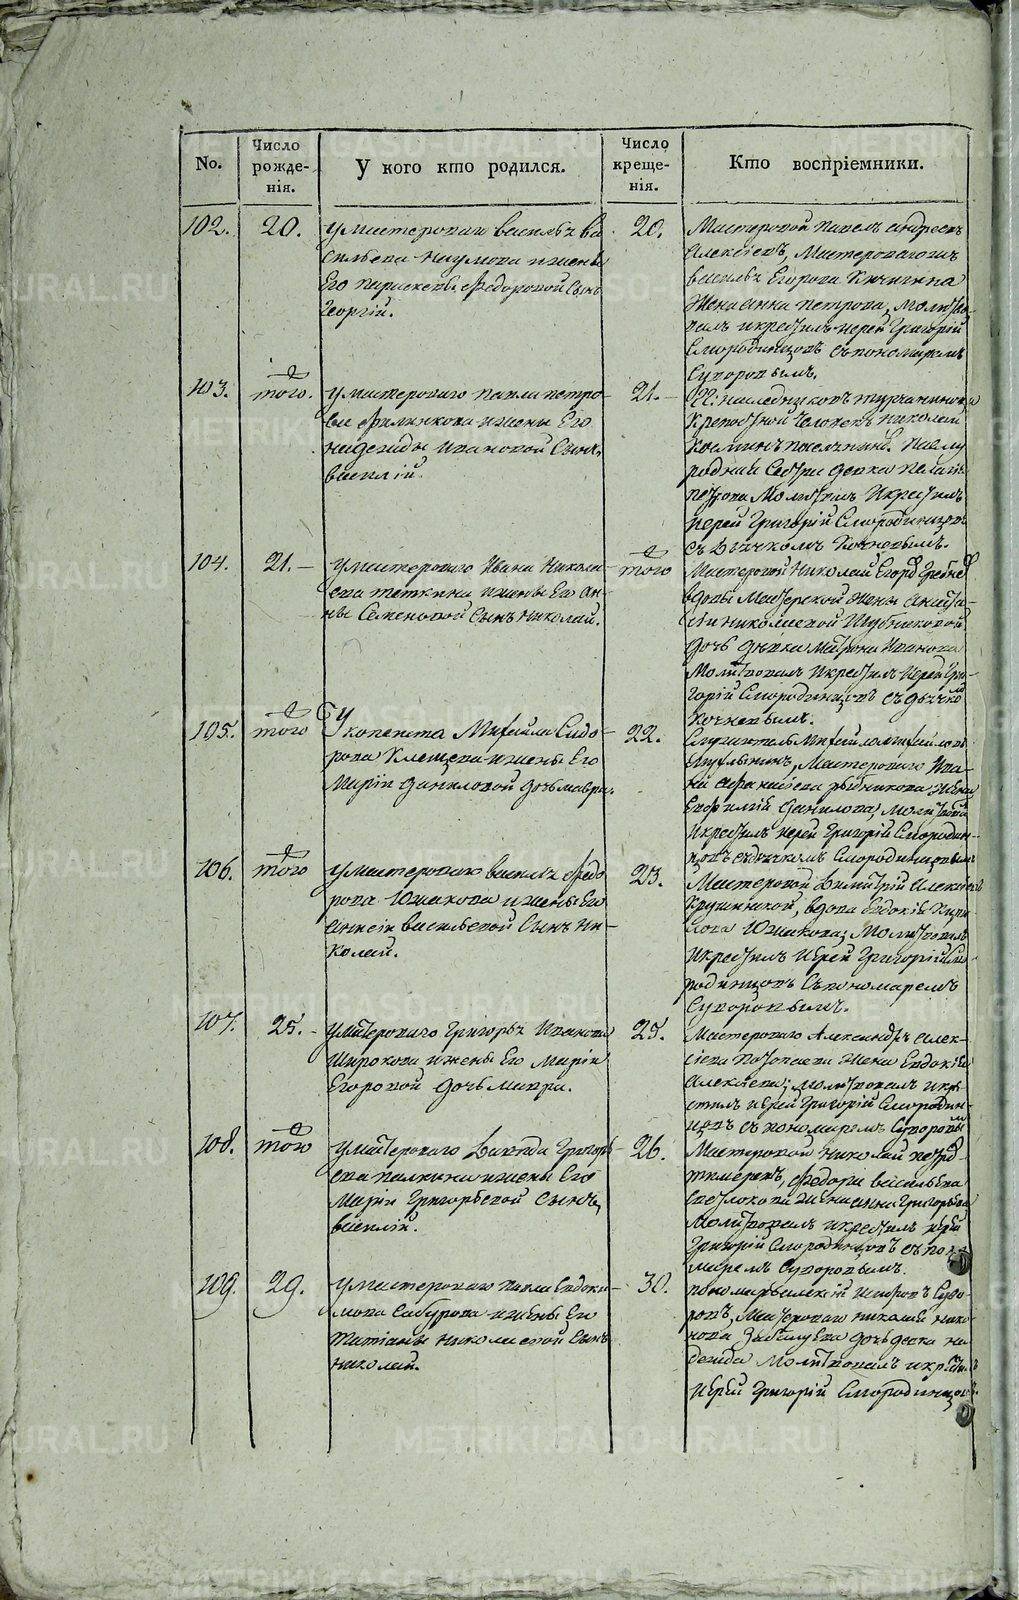 No.
Число рожде-
нія.
У кого кто родился.
Число креще-
нія.
Кто воспріемники.
102.
20.
у мастероваго василья ва
сильева Наумова и жены
Его параскевы федоровой сынъ
Георгій.
20.
Мастеровой павелъ андреевъ
Алексѣевъ, Мастероваго
василья Егорова Кичигина
Жена анна петрова, молитво-
валъ и крестилъ иерей Григорій
Смородинцовъ съ пономаремъ
Суворовымъ.
103.
того.
у мастероваго павла петро-
ва филинкова и жены Его
надежды Ивановой сынъ
василій.
21.
Гг: наследниковъ турчанинова
Крепостной человекъ николай
родная Сестра девка
петрова Молитвовалъ и крестилъ
иерей Григорій Смородинцовъ
съ дьячкомъ Кочневымъ.
104.
21.
у мастероваго Ивана Никола
ева теткина и жены Его Ан-
ны Семеновой Сынъ николай.
того
Мастеровой Николай Егоровъ
вдовы Мастерской жены Анаста-
сіи николаевой
дочь девка матрона Иванова
Молитвовалъ и крестилъ иерей Гри-
горій Смородинцовъ съ дьячко
Кочневымъ.
105.
того
У копеиста Михайла Сидо-
рова Клещева и жены Его
Маріи Даниловой дочь мавра.
22.
Служитель Михайло михайловъ
Мастероваго Ива-
на афанасьева рыбникова жена
Евфимія Данилова, молитвовалъ
и крестилъ иерей Григорій Смородин-
цовъ съ дьячкомъ Смородинцовымъ
106.
того
у мастероваго василья федо
рова Южакова и жены Его
Анисіи васильевой Сынъ ни-
колай.
23.
Мастеровой Димитрій Алексѣевъ
вдова Евдокія Кири
лова Южакова; Молитвовалъ
и крестилъ иерей Григорій Смо-
родинцовъ съ пономаремъ
Суворовымъ.
107.
25.
у мастероваго Григорья Иванова
Широкова и жены Его Маріи
Егоровой дочь мавра.
25.
Мастероваго Александра Алек-
сѣева жена Евдокія
Алексѣева; молитвовалъ и кре-
стилъ иерей Григорій Смородин-
цовъ съ пономаремъ Суворовы
108.
того
у мастероваго Давыда Григорь
ева палкина и жены Его
Маріи Григорьевой Сынъ
василій.
26.
Мастеровой Николай петровъ
федора васильева
жена анна Григорьева
молитвовалъ и крестилъ иерей
Григорій Смородинцовъ съ поно-
маремъ Суворовымъ.
109.
29.
у мастероваго павла Евдоки-
мова Сабурова и жены Его
татіаны николаевой Сынъ
николай.
30.
Суво-
ровъ, Мастероваго николая
дочь девка на
дежда молитвовалъ и крести
иерей Григорій Смородинцов
METRIKI.GASO-URAL.RU